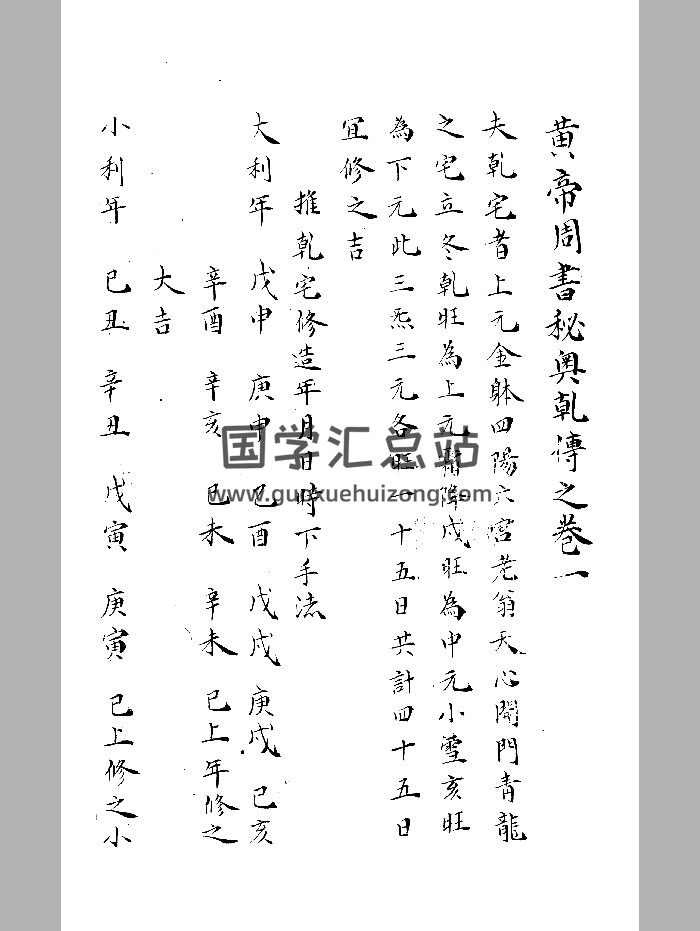 黄帝周書秘奥乾傳之巻一
夫乾宅者上元金躰四陽六宮老翁天心開門青龍
之宅立冬乾旺為上元霜降戌旺為中元小雪亥旺
為下元此三炁三元各旺一十五日共計四十五日
宜修之吉
推乾宅修造年月日時下手法
大利年 戊申 庚申 己酉 戊戌 庚戌 己亥
辛酉 辛亥 己未 辛未 已上年修之
大吉
小利年 己丑 辛丑 戊寅 庚寅 已上修之小
国学汇总站
www.guoxuehuizong.com